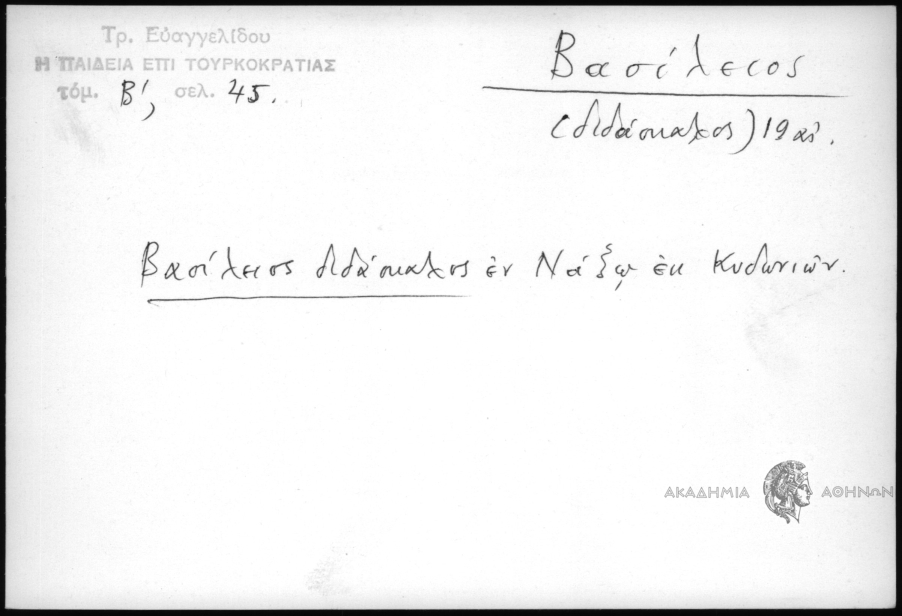 Τρ. Εὐαγγελίδου
Η ΠΑΙΔΕΙΑ ΕΠΙ ΤΟΥΡΚΟΚΡΑΤΙΑΣ
τόμ. Β', σελ. 45.
Βασίλειος
(διδάσκαλος) 19 αἰ.
Βασίλειος διδάσκαλος ἐν Νάξῳ ἐκ Κυδωνιῶν.
ΑΚΑΔΗΜΙΑ ΑΘΗΝΩΝ